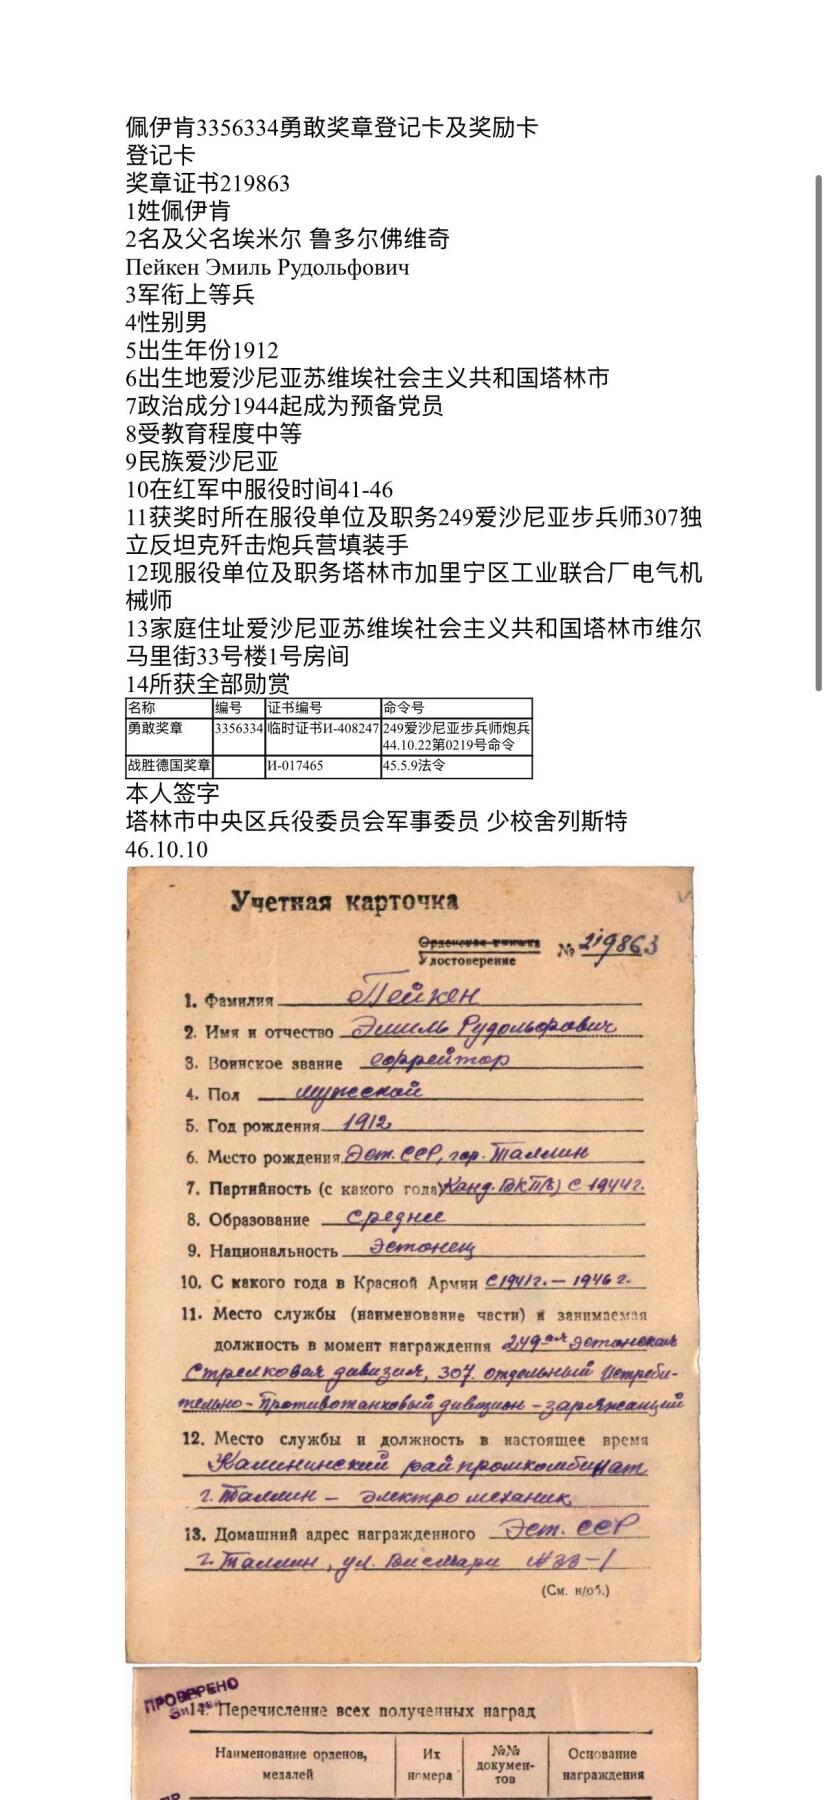 佩伊肯3356334勇敢奖章登记卡及奖励卡
登记卡
奖章证书219863
1姓佩伊肯
2名及父名埃米尔 鲁多尔佛维奇
Пейкен Эмиль Рудольфович
3军衔上等兵
4性别男
5出生年份1912
6出生地爱沙尼亚苏维埃社会主义共和国塔林市
7政治成分1944起成为预备党员
8受教育程度中等
9民族爱沙尼亚
10在红军中服役时间41-46
11获奖时所在服役单位及职务249爱沙尼亚步兵师307独
立反坦克歼击炮兵营填装手
12现服役单位及职务塔林市加里宁区工业联合厂电气机
械师
13家庭住址爱沙尼亚苏维埃社会主义共和国塔林市维尔
马里街33号楼1号房间
14所获全部勋赏
名称 编号 证书编号 命令号
勇敢奖章 3356334 临时证书И-408247 249爱沙尼亚步兵师炮兵
44.10.22第0219号命令
战胜德国奖章 И-017465 45.5.9法令
本人签字
塔林市中央区兵役委员会军事委员 少校舍列斯特
46.10.10
Учетная карточка
Орденская книжка
Удостоверение № 219863
1. Фамилия Пейкен
2. Имя и отчество Эмиль Рудольфович
3. Воинское звание ефрейтор
4. Пол мужской
5. Год рождения 1912
6. Место рождения Эст. ССР, гор. Таллин
7. Партийность (с какого года) Канд. ВКП(б) с 1944 г.
8. Образование среднее
9. Национальность Эстонец
10. С какого года в Красной Армии с 1941 г. – 1946 г.
11. Место службы (наименование части) и занимаемая
должность в момент награждения 249-ая Эстонская
Стрелковая дивизия, 307 отдельный Истреби-
тельно-Противотанковый дивизион – заряжающий
12. Место службы и должность в настоящее время
Калининский райпромкомбинат
г. Таллин – электромеханик
13. Домашний адрес награжденного Эст. ССР
г. Таллин, ул. 33-1
(См. н/об.)
ПРОВЕРЕНО
14. Перечисление всех полученных наград
Наименование орденов, Их №№ Основание
медалей номера докумен- награждения
тов